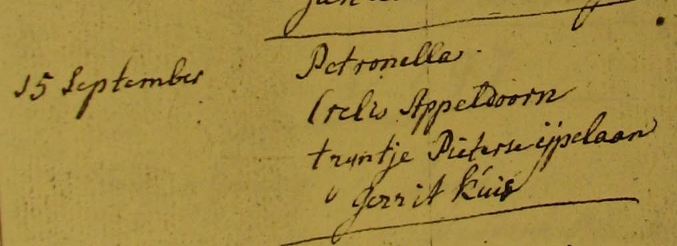 15 September
Petronella
Crelis Appeldoorn
tryntje Pieterse ijpelaan
gerrit Kuis